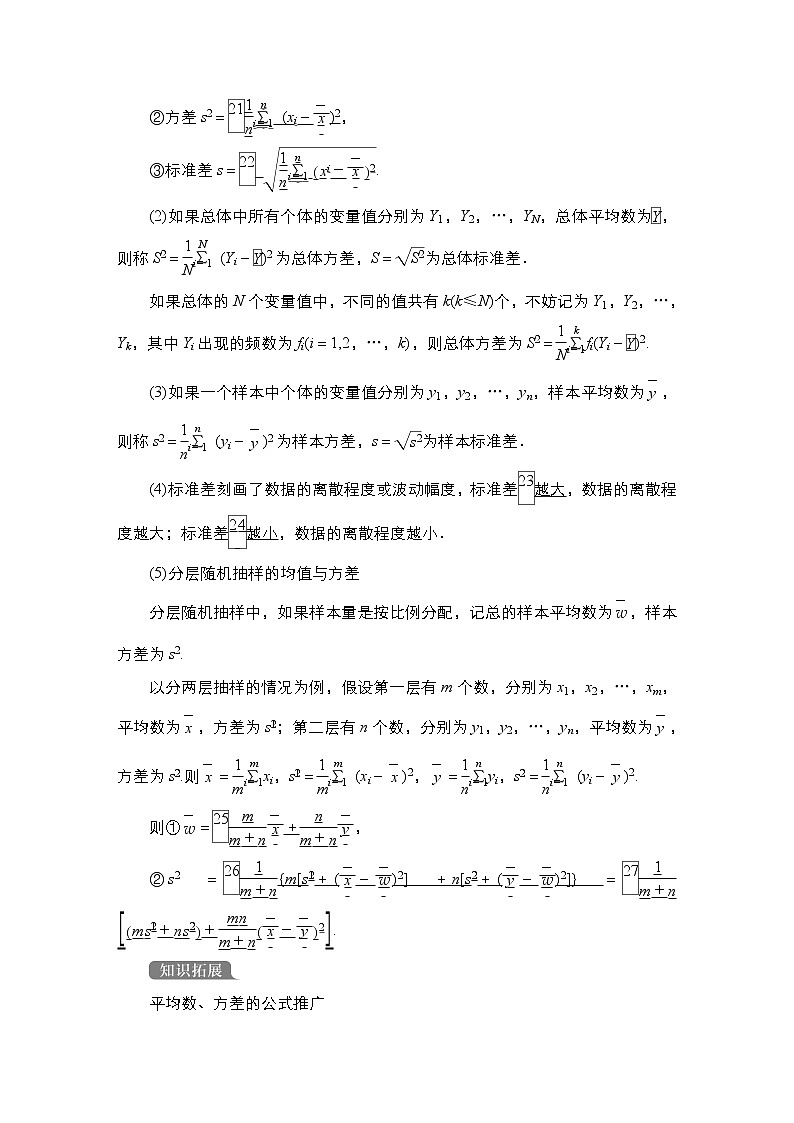 ②方差 s²=21 1/n ∑ⁿᵢ₌₁ (xᵢ-x̄)²,
③标准差 s=22 √(1/n ∑ⁿᵢ₌₁ (xi-x̄)²).
(2)如果总体中所有个体的变量值分别为 Y1,Y2,…,YN,总体平均数为Y,
则称 S²=1/N ∑ᴺᵢ₌₁ (Yi-Y)²为总体方差,S=√S2为总体标准差.
如果总体的 N 个变量值中,不同的值共有 k(k≤N)个,不妨记为 Y1,Y2,…,
Yk,其中 Yi 出现的频数为 fi(i=1,2,…,k),则总体方差为 S²=1/N ∑ᵏᵢ₌₁fi(Yi-Y)².
(3)如果一个样本中个体的变量值分别为 y1,y2,…,yn,样本平均数为ȳ,
则称 s²=1/n ∑ⁿᵢ₌₁ (yi-ȳ)²为样本方差,s=√s2为样本标准差.
(4)标准差刻画了数据的离散程度或波动幅度,标准差23越大,数据的离散程
度越大;标准差24越小,数据的离散程度越小.
(5)分层随机抽样的均值与方差
分层随机抽样中,如果样本量是按比例分配,记总的样本平均数为w̄,样本
方差为 s².
以分两层抽样的情况为例,假设第一层有 m 个数,分别为 x1,x2,…,xm,
平均数为x̄,方差为 s₁²;第二层有 n 个数,分别为 y1,y2,…,yn,平均数为ȳ,
方差为 s².则x̄=1/m ∑ᵐᵢ₌₁xi,s₁²=1/m ∑ᵐᵢ₌₁ (xi-x̄)²,ȳ=1/n ∑ⁿᵢ₌₁yi,s²=1/n ∑ⁿᵢ₌₁ (yi-ȳ)².
则①w̄=25 m/(m+n) x̄+n/(m+n) ȳ,
②s² =26 1/(m+n) {m[s₁²+(x̄-w̄)²] +n[s₂²+(ȳ-w̄)²]} =27 1/(m+n)
[(ms₁²+ns₂²)+mn/(m+n) (x̄-ȳ)²].
知识拓展
平均数、方差的公式推广